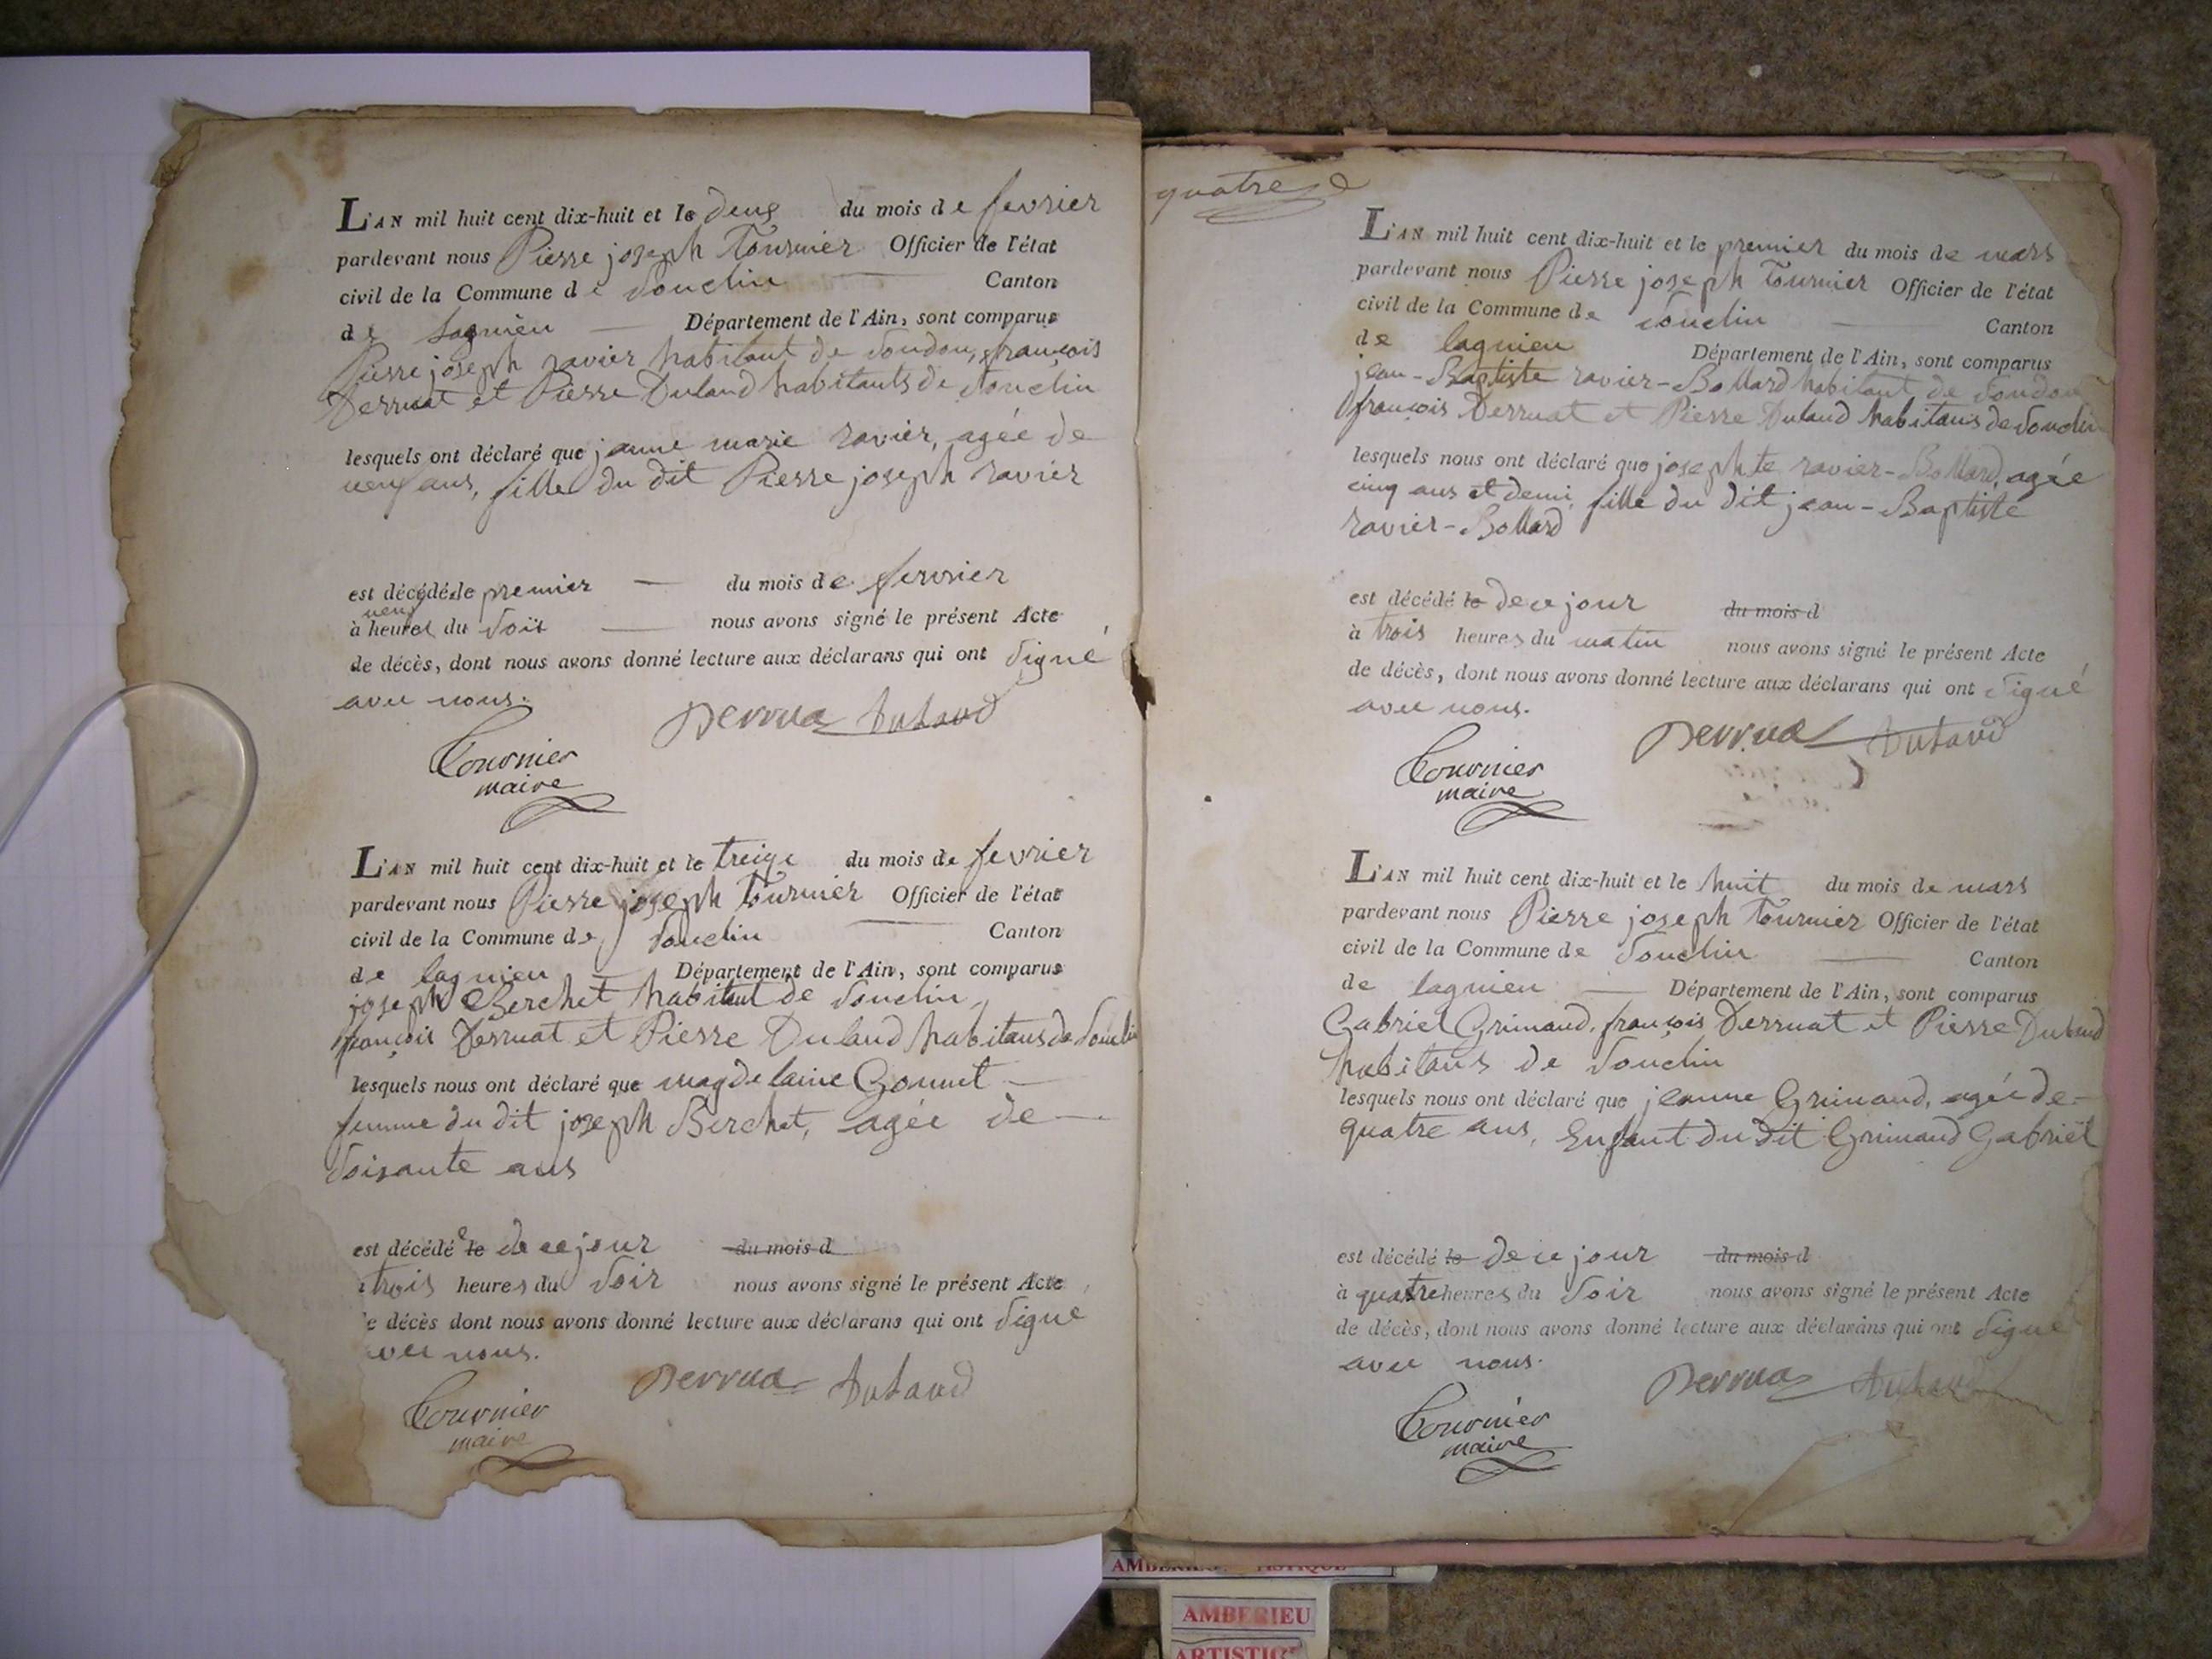 L'AN mil huit cent dix-huit et le deux du mois de fevrier
pardevant nous Pierre joseph Tournier Officier de l'état
civil de la Commune de Souclin Canton
de lagnieu Département de l'Ain, sont comparus
Pierre joseph ravier habitant de Soudon, françois
Derruat et Pierre Dulaud habitants de Souclin
lesquels ont déclaré que jeanne marie ravier, agée de
neuf ans, fille du dit Pierre joseph ravier
est décédée le premier du mois de fevrier
neuf
à heures du Soir nous avons signé le présent Acte
de décès, dont nous avons donné lecture aux déclarans qui ont Signé
avec nous.
Derrua Dulaud
Tournier
maire
L'AN mil huit cent dix-huit et le treize du mois de fevrier
pardevant nous Pierre joseph Tournier Officier de l'état
civil de la Commune de Souclin Canton
de lagnieu Département de l'Ain, sont comparus
joseph Berchet habitant de Souclin,
françois Derruat et Pierre Dulaud habitans de Souclin
lesquels nous ont déclaré que magdelaine Gonnet
femme du dit joseph Berchet, agée de
Soixante ans
est décédée le de ce jour du mois d
trois heures du Soir nous avons signé le présent Acte
e décès dont nous avons donné lecture aux déclarans qui ont Signé
avec nous.
Derrua Dulaud
Tournier
maire
quatre
L'AN mil huit cent dix-huit et le premier du mois de mars
pardevant nous Pierre joseph Tournier Officier de l'état
civil de la Commune de Souclin Canton
de lagnieu Département de l'Ain, sont comparus
jean-Baptiste ravier-Bollard habitant de Soudon
françois Derruat et Pierre Dulaud habitans de Souclin
lesquels nous ont déclaré que josephte ravier-Bollard, agée
cinq ans et demi, fille du dit jean-Baptiste
ravier-Bollard
est décédé le de ce jour du mois d
à trois heures du matin nous avons signé le présent Acte
de décès, dont nous avons donné lecture aux déclarans qui ont Signé
avec nous.
Derrua Dulaud
Tournier
maire
L'AN mil huit cent dix-huit et le huit du mois de mars
pardevant nous Pierre joseph Tournier Officier de l'état
civil de la Commune de Souclin Canton
de lagnieu Département de l'Ain, sont comparus
Gabriel Grimaud, françois Derruat et Pierre Dulaud
habitans de Souclin
lesquels nous ont déclaré que jeanne Grimaud, agée de
quatre ans, Enfant du dit Grimaud Gabriel
est décédé le de ce jour du mois d
à quatre heures du Soir nous avons signé le présent Acte
de décès, dont nous avons donné lecture aux déclarans qui ont Signé
avec nous.
Derrua Dulaud
Tournier
maire
AMBERIEU
AMBERIEU
ARTISTIQ